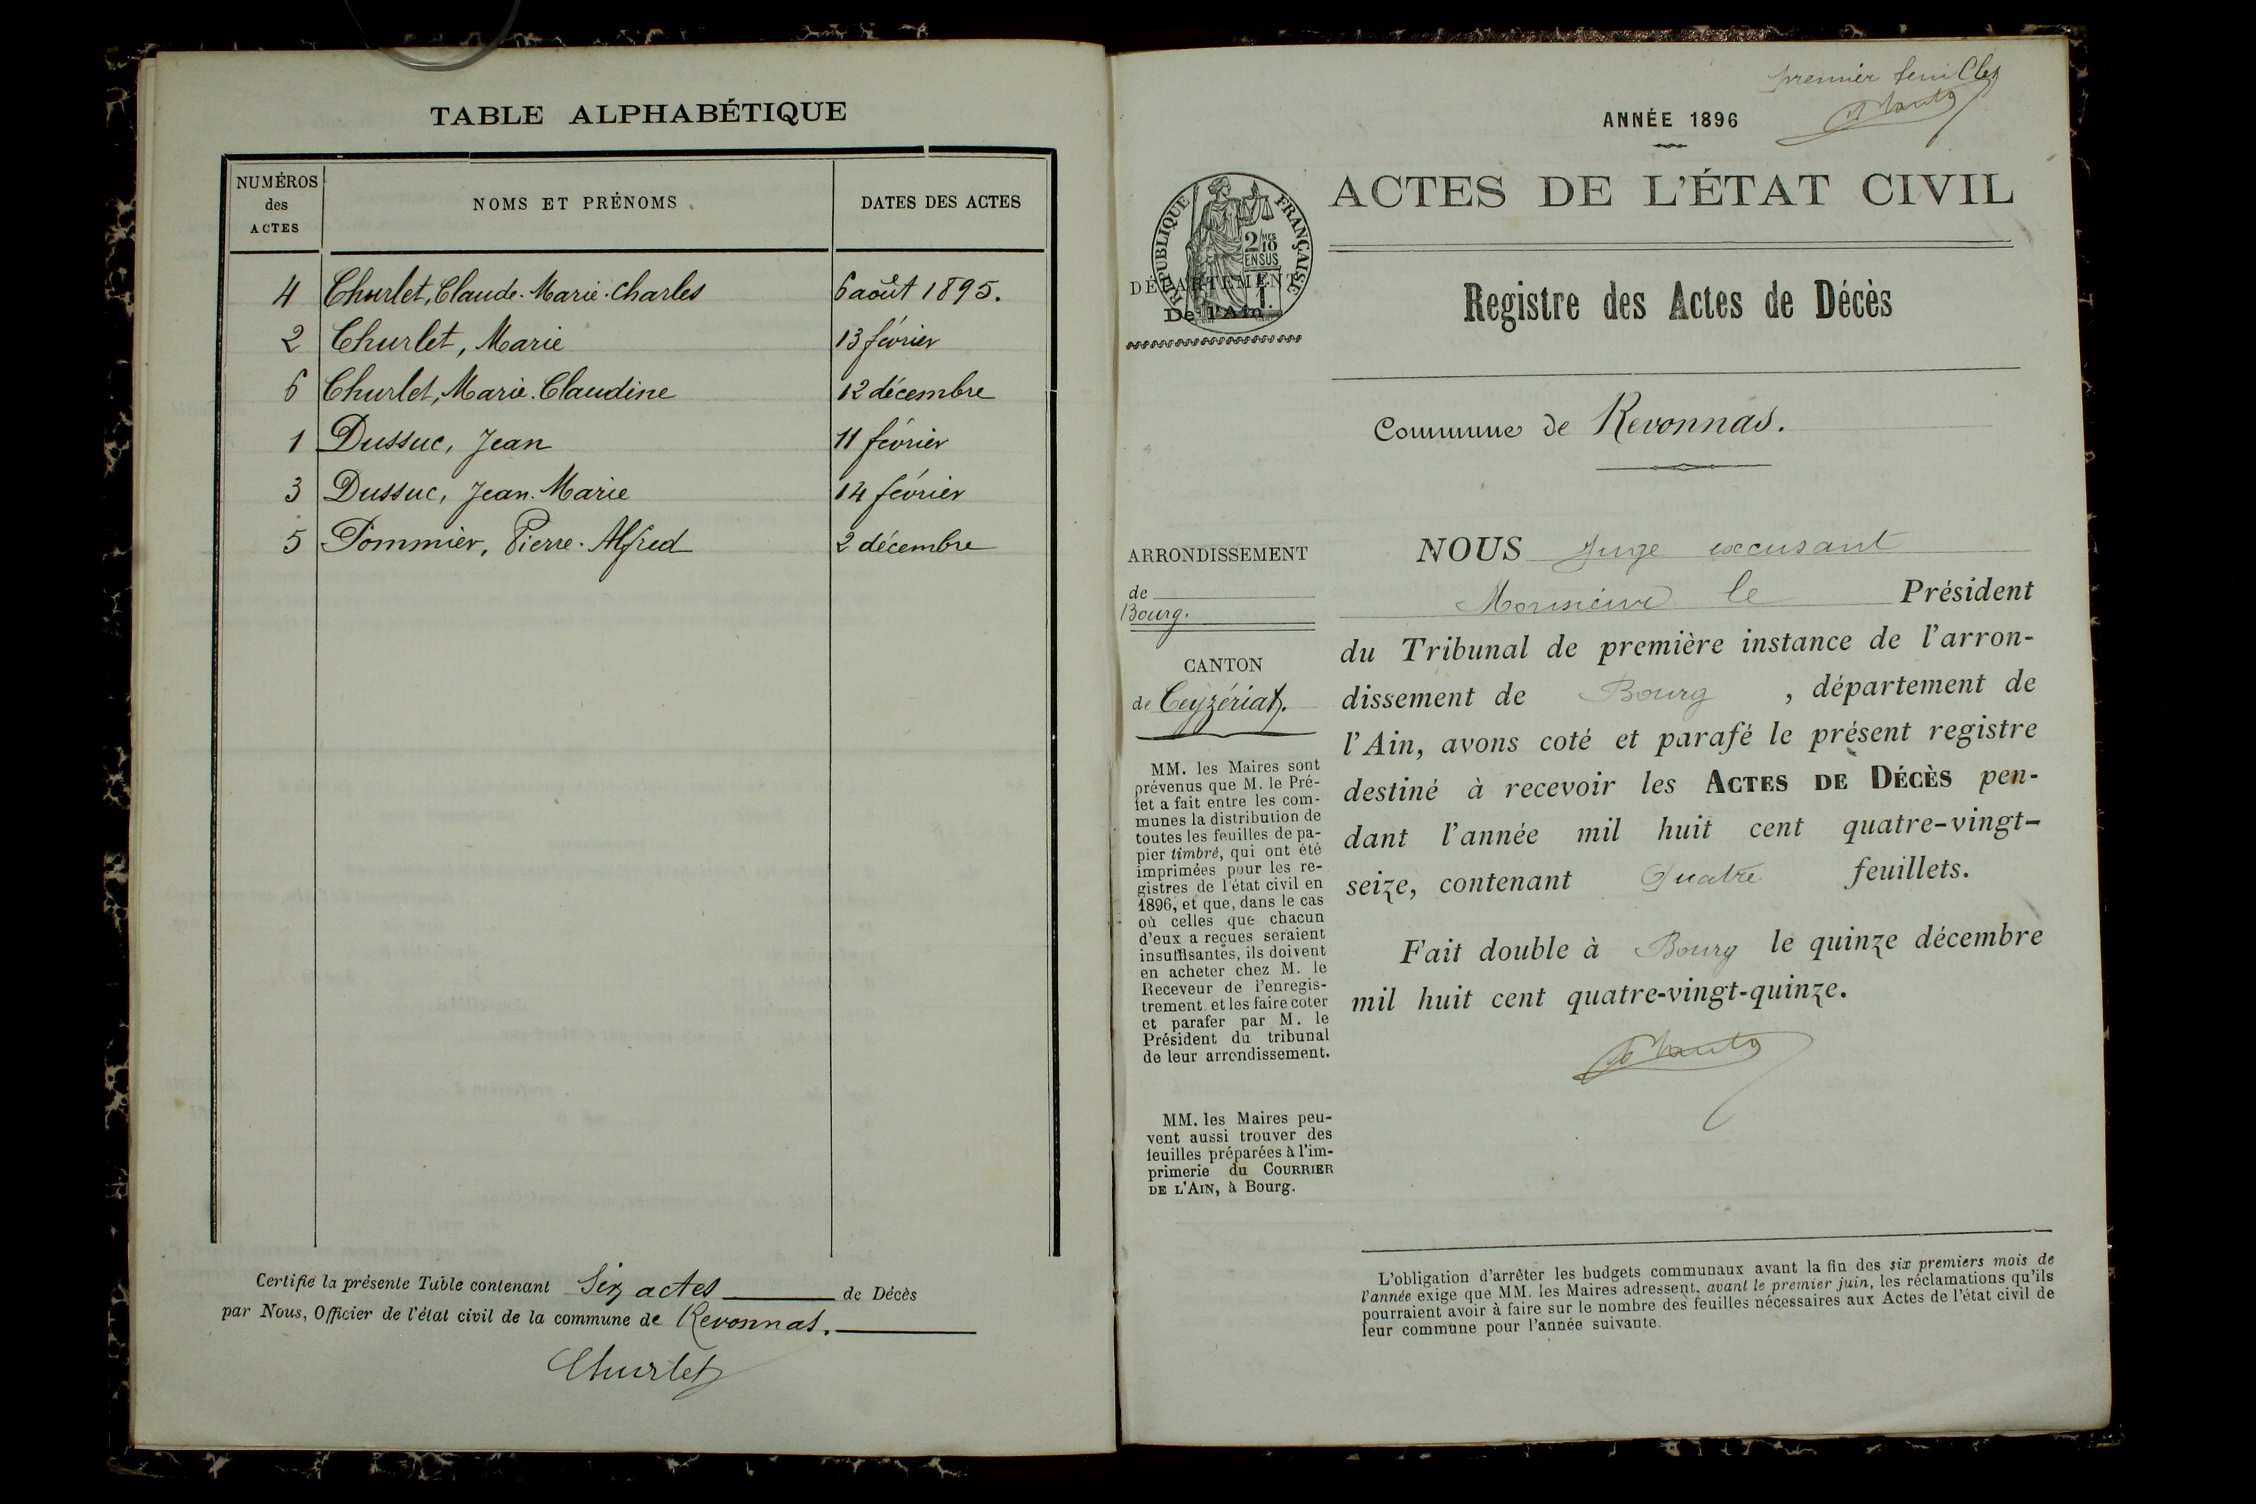 TABLE ALPHABÉTIQUE
NUMÉROS
des
ACTES
NOMS ET PRÉNOMS
DATES DES ACTES
4 Churlet, Claude-Marie-Charles 6 août 1895.
2 Churlet, Marie 13 février
6 Churlet, Marie-Claudine 12 décembre
1 Dussuc, Jean 11 février
3 Dussuc, Jean-Marie 14 février
5 Pommier, Pierre-Alfred 2 décembre
Certifié la présente Table contenant Six actes de Décès
par Nous, Officier de l'état civil de la commune de Revonnas.
Churlet
premier feuillet
ANNÉE 1896
ACTES DE L'ÉTAT CIVIL
RÉPUBLIQUE FRANÇAISE
2/10
EN SUS
DÉPARTEMENT
De l'Ain
Registre des Actes de Décès
Commune de Revonnas.
ARRONDISSEMENT
de
Bourg.
CANTON
de Ceyzériat.
MM. les Maires sont
prévenus que M. le Pré-
fet a fait entre les com-
munes la distribution de
toutes les feuilles de pa-
pier timbré, qui ont été
imprimées pour les re-
gistres de l'état civil en
1896, et que, dans le cas
où celles que chacun
d'eux a reçues seraient
insuffisantes, ils doivent
en acheter chez M. le
Receveur de l'enregis-
trement et les faire coter
et parafer par M. le
Président du tribunal
de leur arrondissement.
MM. les Maires peu-
vent aussi trouver des
feuilles préparées à l'im-
primerie du COURRIER
DE L'AIN, à Bourg.
NOUS Juge excusant
Monsieur le Président
du Tribunal de première instance de l'arron-
dissement de Bourg, département de
l'Ain, avons coté et parafé le présent registre
destiné à recevoir les ACTES DE DÉCÈS pen-
dant l'année mil huit cent quatre-vingt-
seize, contenant Quatre feuillets.
Fait double à Bourg le quinze décembre
mil huit cent quatre-vingt-quinze.
L'obligation d'arrêter les budgets communaux avant la fin des six premiers mois de
l'année exige que MM. les Maires adressent, avant le premier juin, les réclamations qu'ils
pourraient avoir à faire sur le nombre des feuilles nécessaires aux Actes de l'état civil de
leur commune pour l'année suivante.